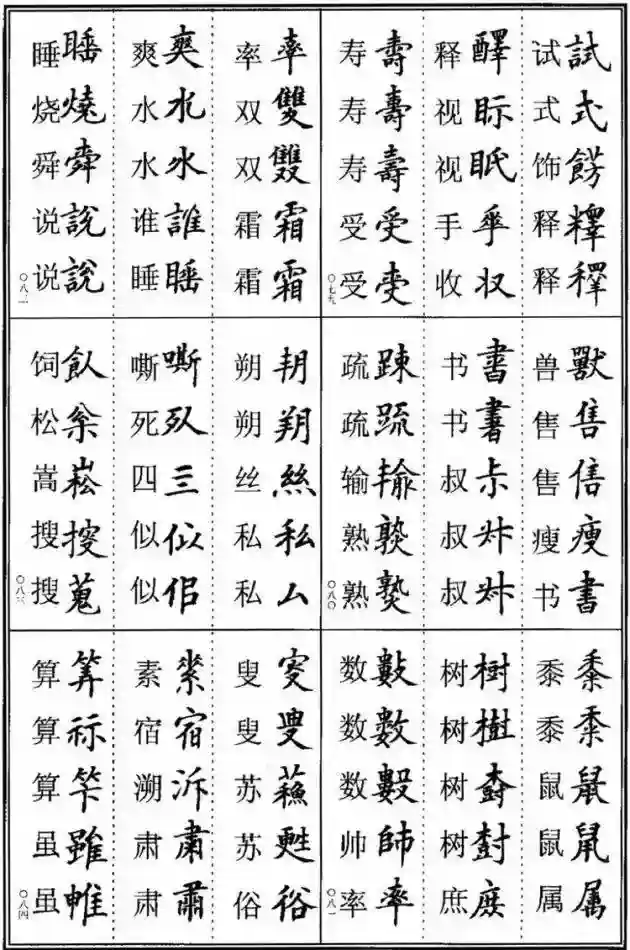 试試 式式 饰餝 释釋 释释
释醳 视眎 视眡 手 收収
寿壽 寿壽 寿壽 受受 受
〇七九
兽獸 售售 售 瘦瘦 书書
书書 书書 叔尗 叔 叔
疏踈 疏䟽 输输 熟 熟
〇八〇
黍黍 黍 鼠鼠 鼠 属属
树樹 树樹 树 树尌 庶庻
数數 数數 数 帅帥 率率
〇八一
率率 双雙 双雙 霜霜 霜霜
爽爽 水水 水水 谁誰 睡睡
睡睡 烧燒 舜舜 说說 说說
〇八二
朔 朔朔 丝絲 私私 私厶
嘶嘶 死 四亖 似似 似佀
饲飤 松枀 嵩崧 搜搜 搜蒐
〇八三
叟叜 叟 苏蘓 苏甦 俗俗
素 宿宿 溯泝 肃肅 肃
算筭 算祘 算 虽雖 虽
〇八四